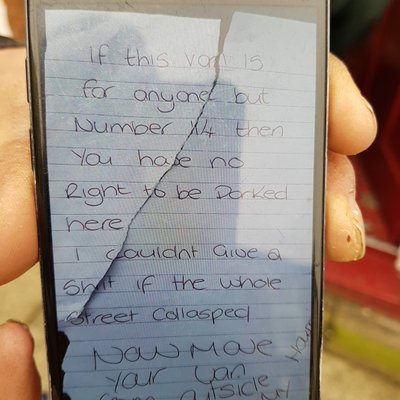 If this van is
for anyone but
Number 14 then
You have no
Right to be Parked
here
I couldnt Give a
Shit if the whole
Street Collasped
Now Move
Your Van
outside
MY
House